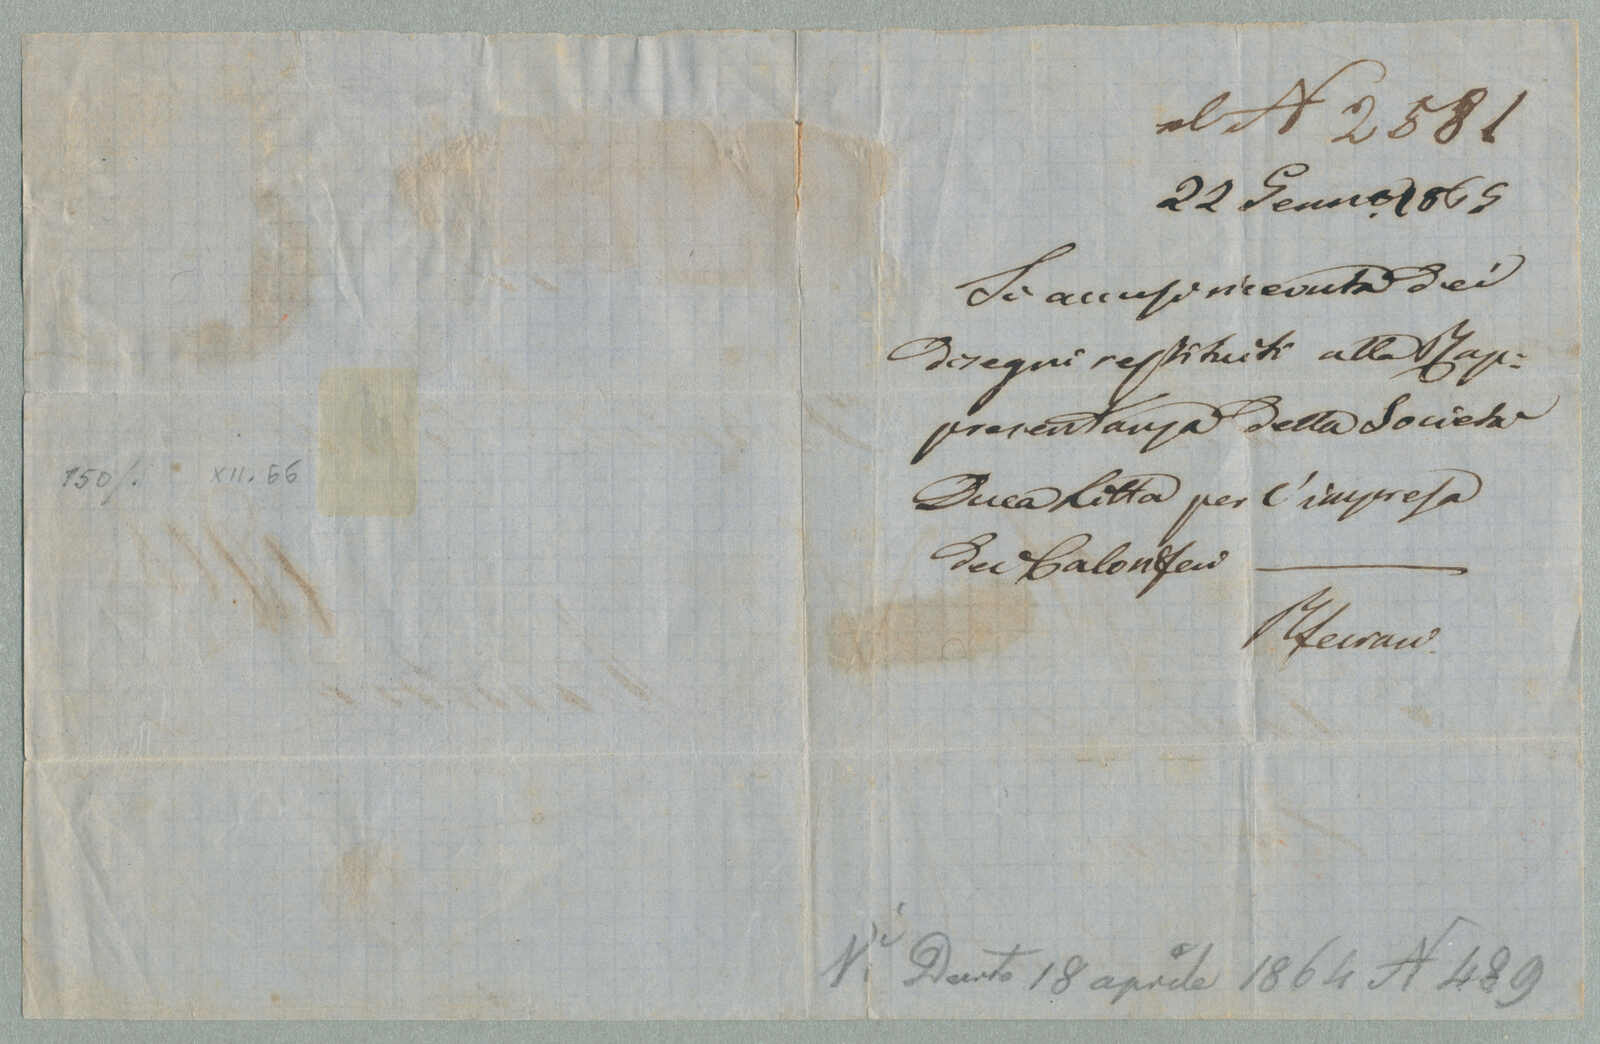 al N 2581
22 Genn.o 1865
Si accusa ricevuta dei
disegni restituiti alla Rap=
presentanza della Società
Duca Litta per l'impresa
dei Caloriferi
150/. XII. 66
18 aprile 1864 N 489